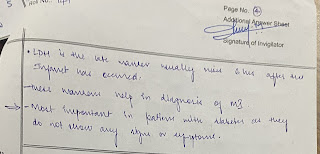 5
Page No. 4
Additional Answer Sheet
Signature of Invigilator
• LDH is the late marker usually rises after
Infarct has occurred.
- These markers help in diagnosis of MI
→ - Most important in patient with diabetes as they
do not show any signs or symptoms.